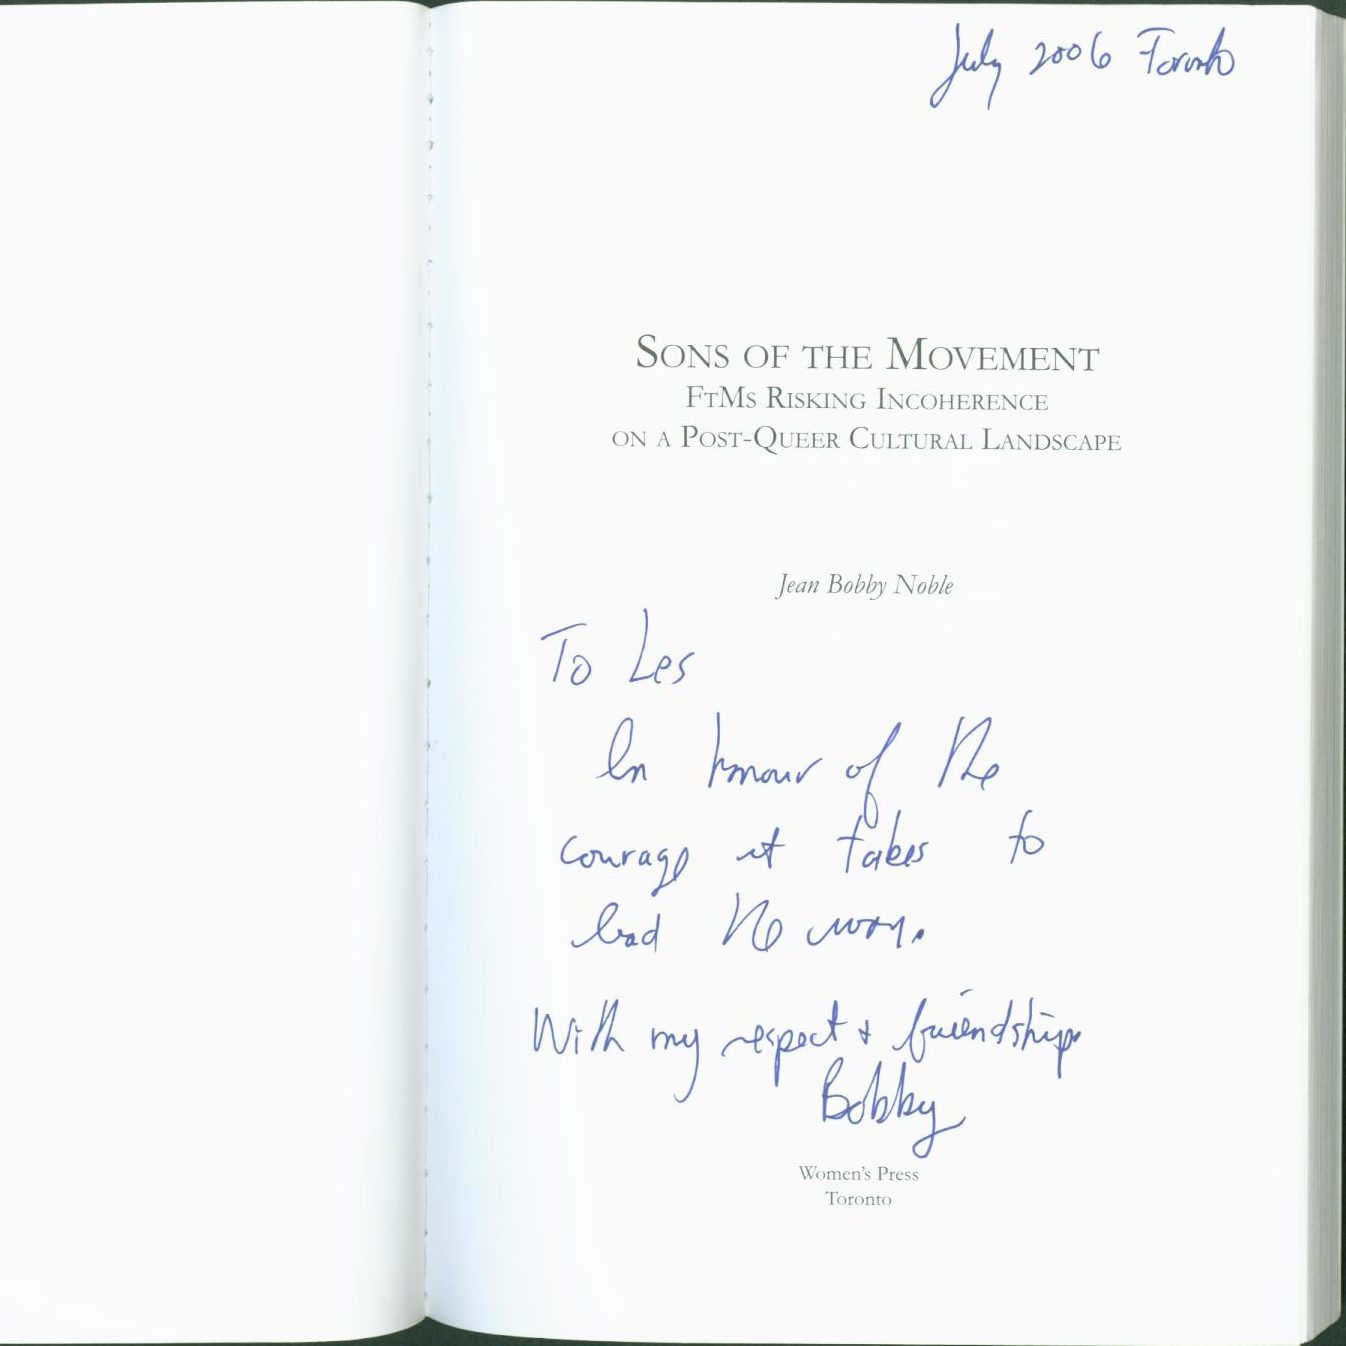 July 2006 Toronto
SONS OF THE MOVEMENT
FTMS RISKING INCOHERENCE
ON A POST-QUEER CULTURAL LANDSCAPE
Jean Bobby Noble
To Les
In honour of the
courage it takes to
lead the way.
With my respect + friendship.
Bobby
Women's Press
Toronto